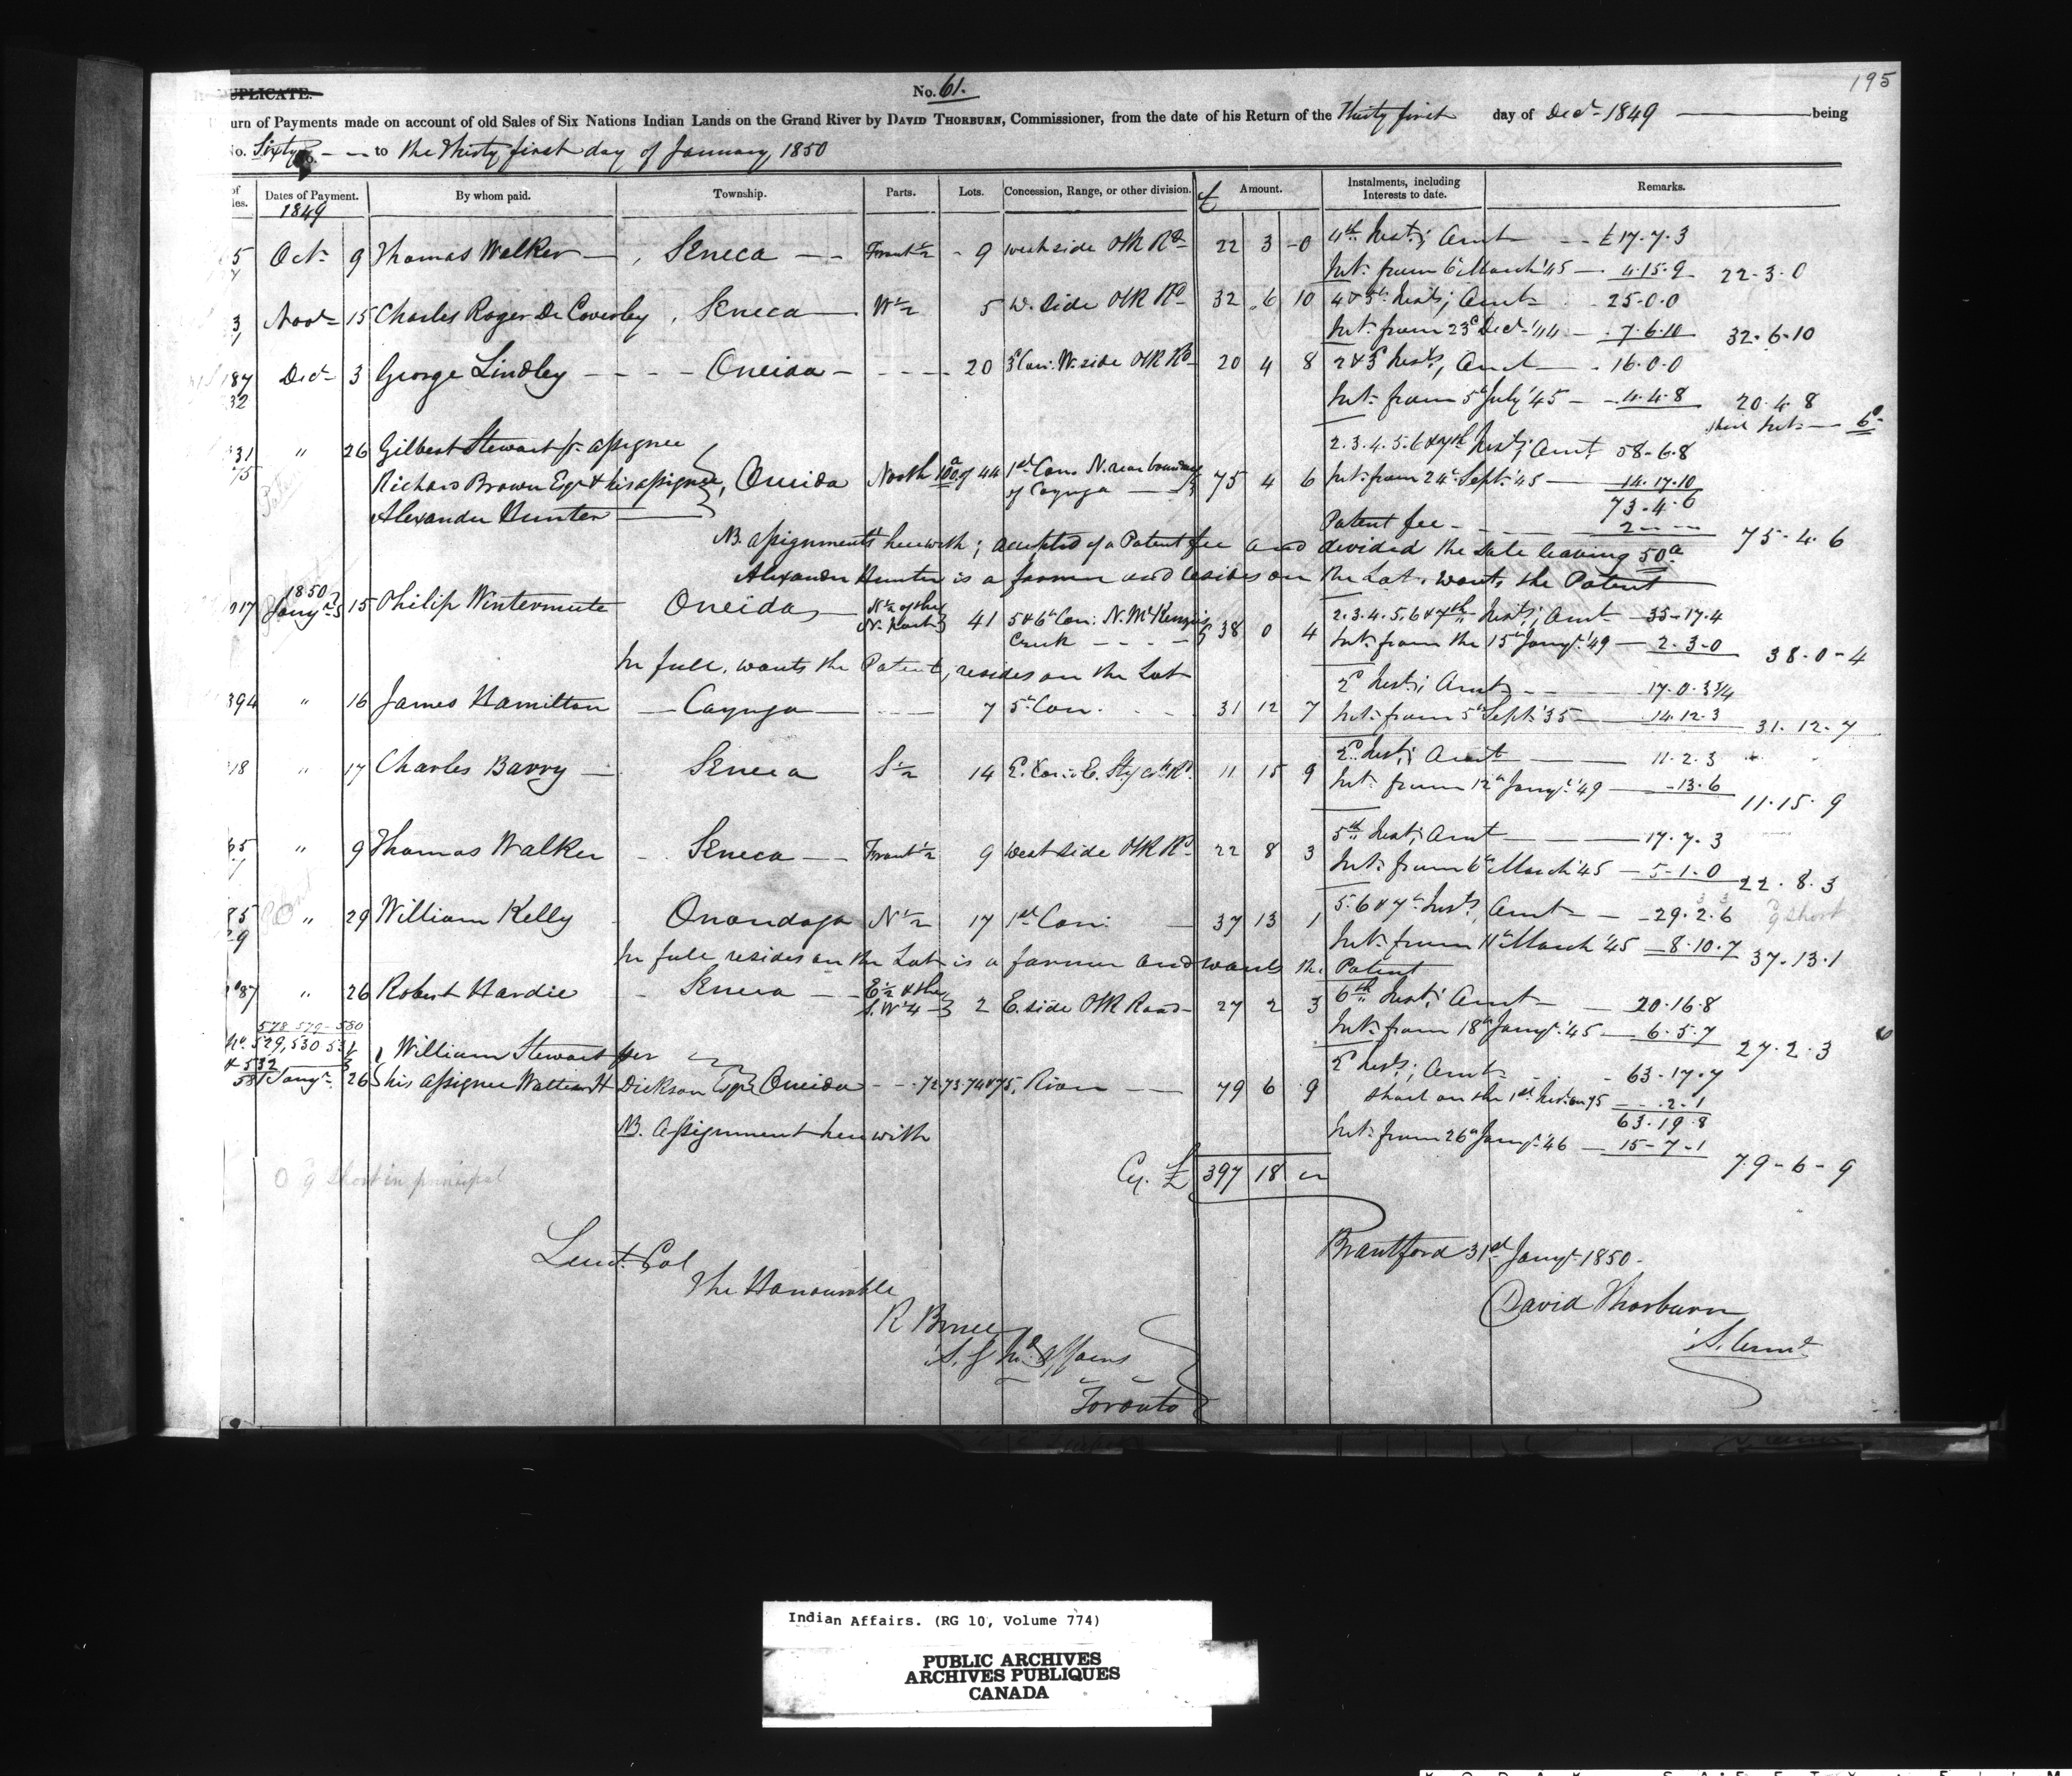 195
DUPLICATE.
No. 61.
urn of Payments made on account of old Sales of Six Nations Indian Lands on the Grand River by DAVID THORBURN, Commissioner, from the date of his Return of the Thirty first day of Decr 1849 being
No. Sixty to the Thirty first day of January, 1850
of les. Dates of Payment. By whom paid. Township. Parts. Lots. Concession, Range, or other division. £ Amount. Instalments, including Interests to date. Remarks.
1849
5 Octr 9 Thomas Walker Seneca Front ½ 9 West side Plk Rd 22 3 0 4th Inst; Amt £17.7.3
Int. from 6th March '45 4.15.9 22.3.0
3 Novr 15 Charles Roger De Coverley Seneca W ½ 5 W. Side Plk Rd 32 6 10 4 & 5th Insts; Amt 25.0.0
Int. from 23d Decr '44 7.6.10 32.6.10
187 Decr 3 George Lindley Oneida 20 3d Con. W. side Plk Rd 20 4 8 2 & 3d Insts, Amt 16.0.0
32 Int. from 5th July '45 4.4.8 20.4.8
short Int. 6d
31 " 26 Gilbert Stewart pr assignee 2.3.4.5.6 & 7th Insts; Amt 58.6.8
75 Richard Brown Esqr & his assignee, Oneida North 100a of 44 1st Con. N. rear boundary of Cayuga 75 4 6 Int. from 24th Septr '45 14.17.10
Alexander Hunter 73.4.6
Patent fee 2 75.4.6
NB. assignments herewith; accepted of a Patent fee and divided the Sale leaving 50a
Alexander Hunter is a farmer and resides on the Lot. wants the Patent
1850
17 Jany 15 Philip Wintermute Oneida N ½ of the N. part 41 5 & 6th Con: N. McKenzies Creek 38 0 4 2.3.4.5.6 & 7th Insts; Amt 35.17.4
Int. from the 15th Jany '49 2.3.0 38.0.4
In full, wants the Patent, resides on the Lot
394 " 16 James Hamilton Cayuga 7 5th Con. 31 12 7 2d Inst; Amt 17.0.3¾
Int. from 5th Septr '35 14.12.3 31.12.7
18 " 17 Charles Barry Seneca S ½ 14 11 15 9 2d Inst; Amt 11.2.3
Int. from 12th Jany '49 13.6 11.15.9
65 " 9 Thomas Walker Seneca Front ½ 9 West side Plk Rd 22 8 3 5th Inst; Amt 17.7.3
Int. from 6th March '45 5.1.0 22.8.3
85 " 29 William Kelly Onondaga N ½ 17 1st Con: 37 13 1 5.6 & 7th Insts, Amt 29.2.6 9 short
29 Int. from 11th March '45 8.10.7 37.13.1
In full resides on the Lot is a farmer and wants the Patent
87 " 26 Robert Hardie Seneca E ½ & the S.W ¼ 2 E. side Plk Road 27 2 3 6th Inst; Amt 20.16.8
Int. from 18th Jany '45 6.5.7 27.2.3
578 579 580
No. 529, 530 531 & 532 William Stewart per 2d Insts; Amt 63.17.7
581 Jany 26 his assignee William H Dickson Esqr Oneida 72 73 74 & 75, River 79 6 9 short on the 1st Inst. on 75 2.1
63.19.8
NB. Assignment herewith Int. from 26th Jany '46 15.7.1
79.6.9
9 short in principal
Cy. £ 397 18
Brantford 31st Jany 1850
Lieut. Col
The Honourable
R Bruce
S. G. Ind. Affairs
Toronto
David Thorburn
S. Comr
Indian Affairs. (RG 10, Volume 774)
PUBLIC ARCHIVES
ARCHIVES PUBLIQUES
CANADA